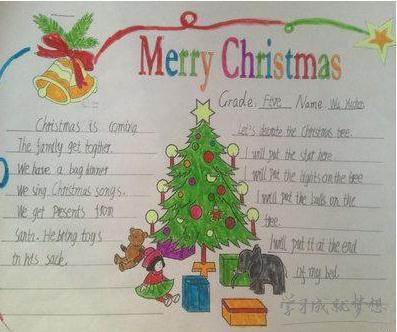 Merry Christmas
Grade: Five Name Wu
Christmas is coming
The family get togther.
We have a bag dinner
We sing Christmas songs.
We get presents from
Santa. He bring toys
in his sack.
Let's decorate the Christmas tree.
I will put the star here
I will put the lights on the tree
I will put the balls on the
tree.
I will put it at the end
of my bed.
学习成就梦想